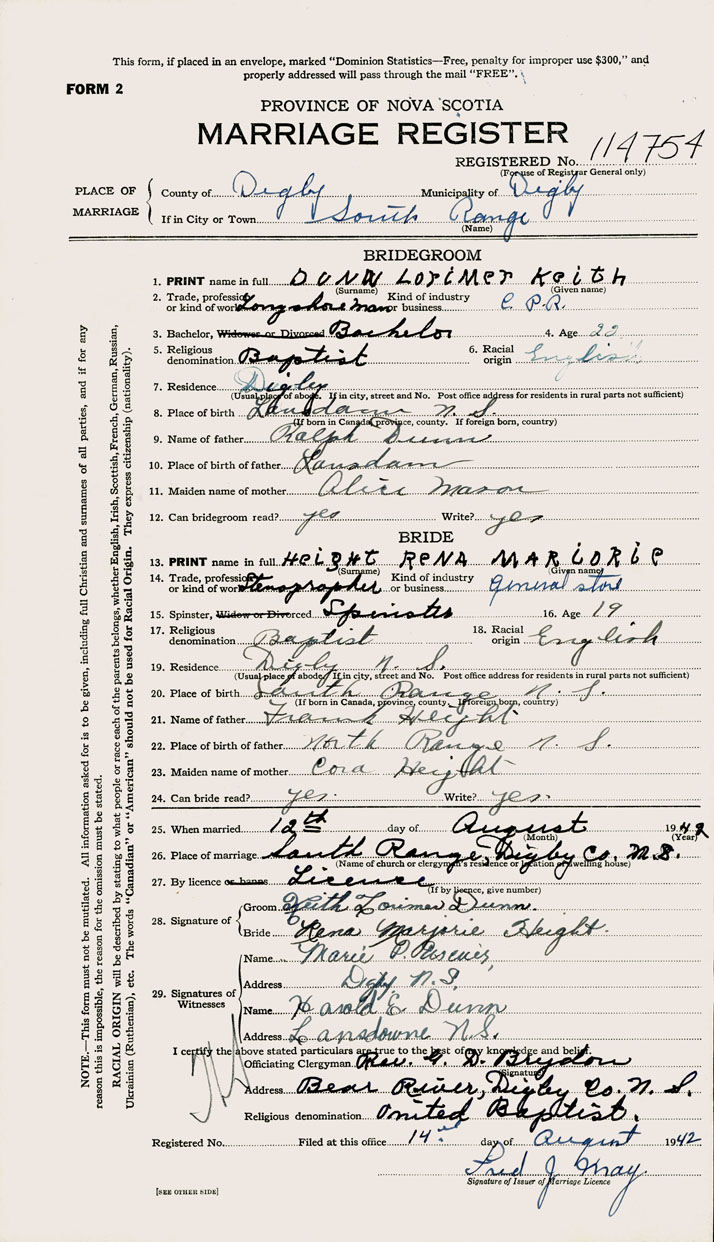 This form, if placed in an envelope, marked "Dominion Statistics—Free, penalty for improper use $300," and
properly addressed will pass through the mail "FREE".
FORM 2
PROVINCE OF NOVA SCOTIA
MARRIAGE REGISTER
REGISTERED No. 114754
(For use of Registrar General only)
PLACE OF MARRIAGE
County of Digby Municipality of Digby
If in City or Town South Range
(Name)
BRIDEGROOM
1. PRINT name in full DUNN LORIMER KEITH
(Surname) (Given name)
2. Trade, profession or kind of work Longshoreman Kind of industry or business C. P. R.
3. Bachelor, Widower or Divorced Bachelor 4. Age 22
5. Religious denomination Baptist 6. Racial origin English
7. Residence Digby
(Usual place of abode. If in city, street and No. Post office address for residents in rural parts not sufficient)
8. Place of birth Lansdown N. S.
(If born in Canada, province, county. If foreign born, country)
9. Name of father Ralph Dunn
10. Place of birth of father Lansdown
11. Maiden name of mother Alice Mason
12. Can bridegroom read? yes Write? yes
BRIDE
13. PRINT name in full HEIGHT RENA MARJORIE
(Surname) (Given name)
14. Trade, profession or kind of work Stenographer Kind of industry or business general store
15. Spinster, Widow or Divorced Spinster 16. Age 19
17. Religious denomination Baptist 18. Racial origin English
19. Residence Digby N. S.
(Usual place of abode. If in city, street and No. Post office address for residents in rural parts not sufficient)
20. Place of birth South Range N. S.
(If born in Canada, province, county. If foreign born, country)
21. Name of father Frank Height
22. Place of birth of father North Range N. S.
23. Maiden name of mother Cora Height
24. Can bride read? yes. Write? yes.
25. When married 12th day of August 1942
(Month) (Year)
26. Place of marriage South Range, Digby Co. N.S.
(Name of church or clergyman's residence or location of dwelling house)
27. By licence or banns License
(If by licence, give number)
28. Signature of
Groom Keith Lorimer Dunn.
Bride Rena Marjorie Height.
29. Signatures of Witnesses
Name Marie P.
Address Digby N.S.
Name Harold E Dunn
Address Lansdowne N.S.
I certify the above stated particulars are true to the best of my knowledge and belief.
Officiating Clergyman Rev. G. D. Brydon
(Signature)
Address Bear River, Digby Co. N. S.
Religious denomination United Baptist.
Registered No. Filed at this office 14th day of August 1942
Fred J May.
Signature of Issuer of Marriage Licence
[SEE OTHER SIDE]
NOTE.—This form must not be mutilated. All information asked for is to be given, including full Christian and surnames of all parties, and if for any
reason this is impossible, the reason for the omission must be stated.
RACIAL ORIGIN will be described by stating to what people or race each of the parents belongs, whether English, Irish, Scottish, French, German, Russian,
Ukrainian (Ruthenian), etc. The words "Canadian" or "American" should not be used for Racial Origin. They express citizenship (nationality).